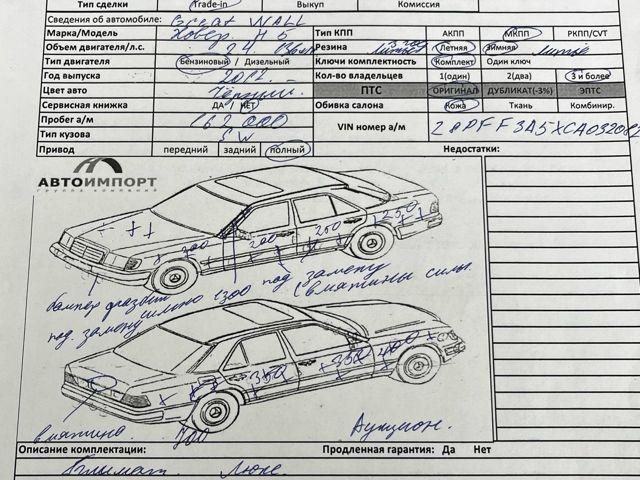 Тип сделки Trade-in Выкуп Комиссия
Сведения об автомобиле: Great WALL
Марка/Модель Ховер H5 Тип КПП АКПП МКПП РКПП/CVT
Объем двигателя/л.с. 2.4 Резина Летняя Зимняя Литьё
Тип двигателя Бензиновый / Дизельный Ключи комплектность Комплект Один ключ
Год выпуска 2012 Кол-во владельцев 1(один) 2(два) 3 и более
Цвет авто Чёрный ПТС ОРИГИНАЛ ДУБЛИКАТ(-3%) ЭПТС
Сервисная книжка ДА НЕТ Обивка салона Кожа Ткань Комбинир.
Пробег а/м 162 000 VIN номер а/м
Тип кузова SW
Привод передний задний полный Недостатки:
АВТОИМПОРТ
ГРУППА КОМПАНИЙ
700 200 260 250
бампер разбит
под замену сильно 1300 под замену
(вмятины силь.
350 350 400
вмятина. 700 Аукцион.
Описание комплектации: Продленная гарантия: Да Нет
Климат Люкс